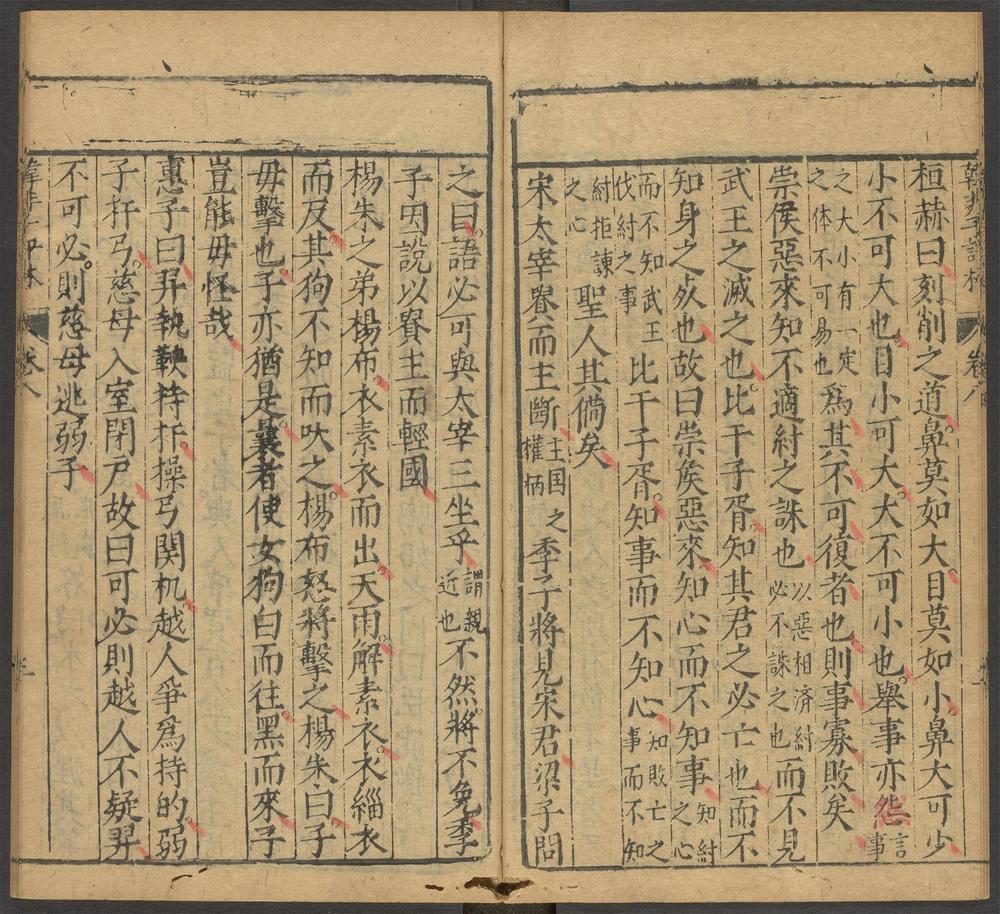 桓赫曰刻削之道鼻莫如大目莫如小鼻大可少
小不可大也目小可大大不可小也舉事亦然言事
之大小有一定之体不可易也為其不可復者也則事寡敗矣
崇侯惡來知不適紂之誅也以惡相済紂必不誅之也而不見
武王之滅之也比干子胥知其君之必亡也而不
知身之死也故曰崇侯惡來知心而不知事知紂之心
而不知武王伐紂之事比干子胥知事而不知心知敗亡之事而不知
紂拒諫之心聖人其僃矣
宋太宰貴而主斷主国權柄之季子將見宋君梁子問
之曰語必可與太宰三坐乎謂親近也不然將不免季
子因說以貴主而輕國
楊朱之弟楊布衣素衣而出天雨解素衣衣緇衣
而反其狗不知而吠之楊布怒將擊之楊朱曰子
毋擊也子亦猶是曩者使女狗白而往黑而來子
豈能毋怪哉
惠子曰羿執鞅持扞操弓関机越人爭為持的弱
子扞弓慈母入室閉户故曰可必則越人不疑羿
不可必則慈母逃弱子